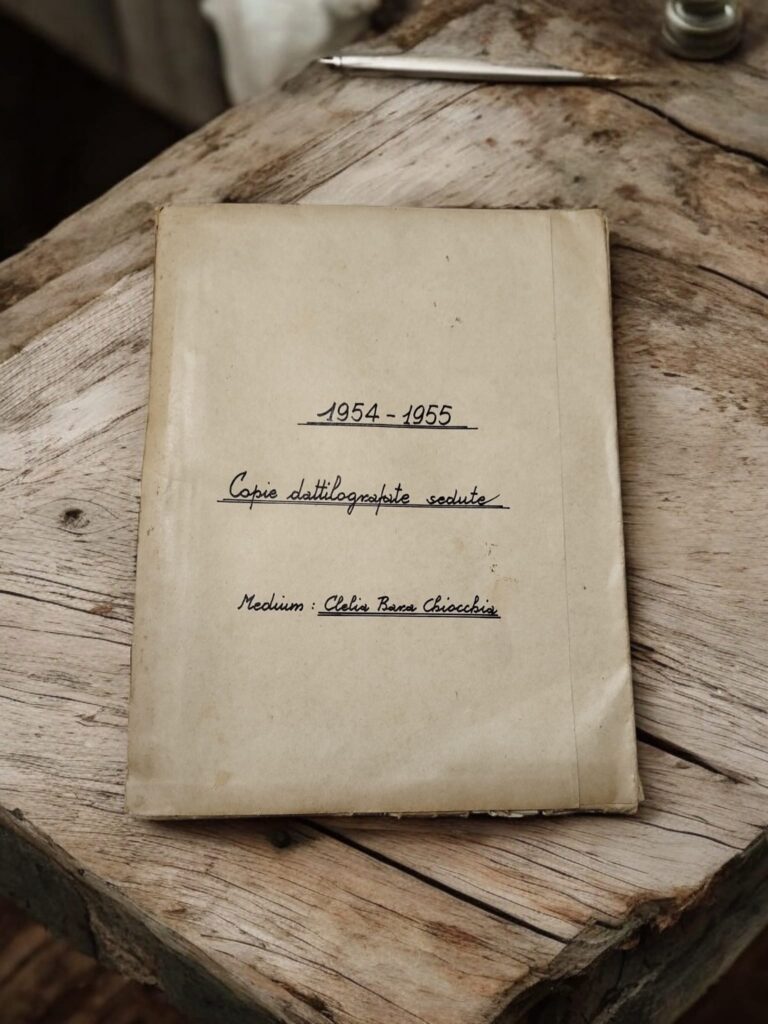 1954 - 1955
Copie dattilografate sedute
Medium: Clelia Bara Chiocchia